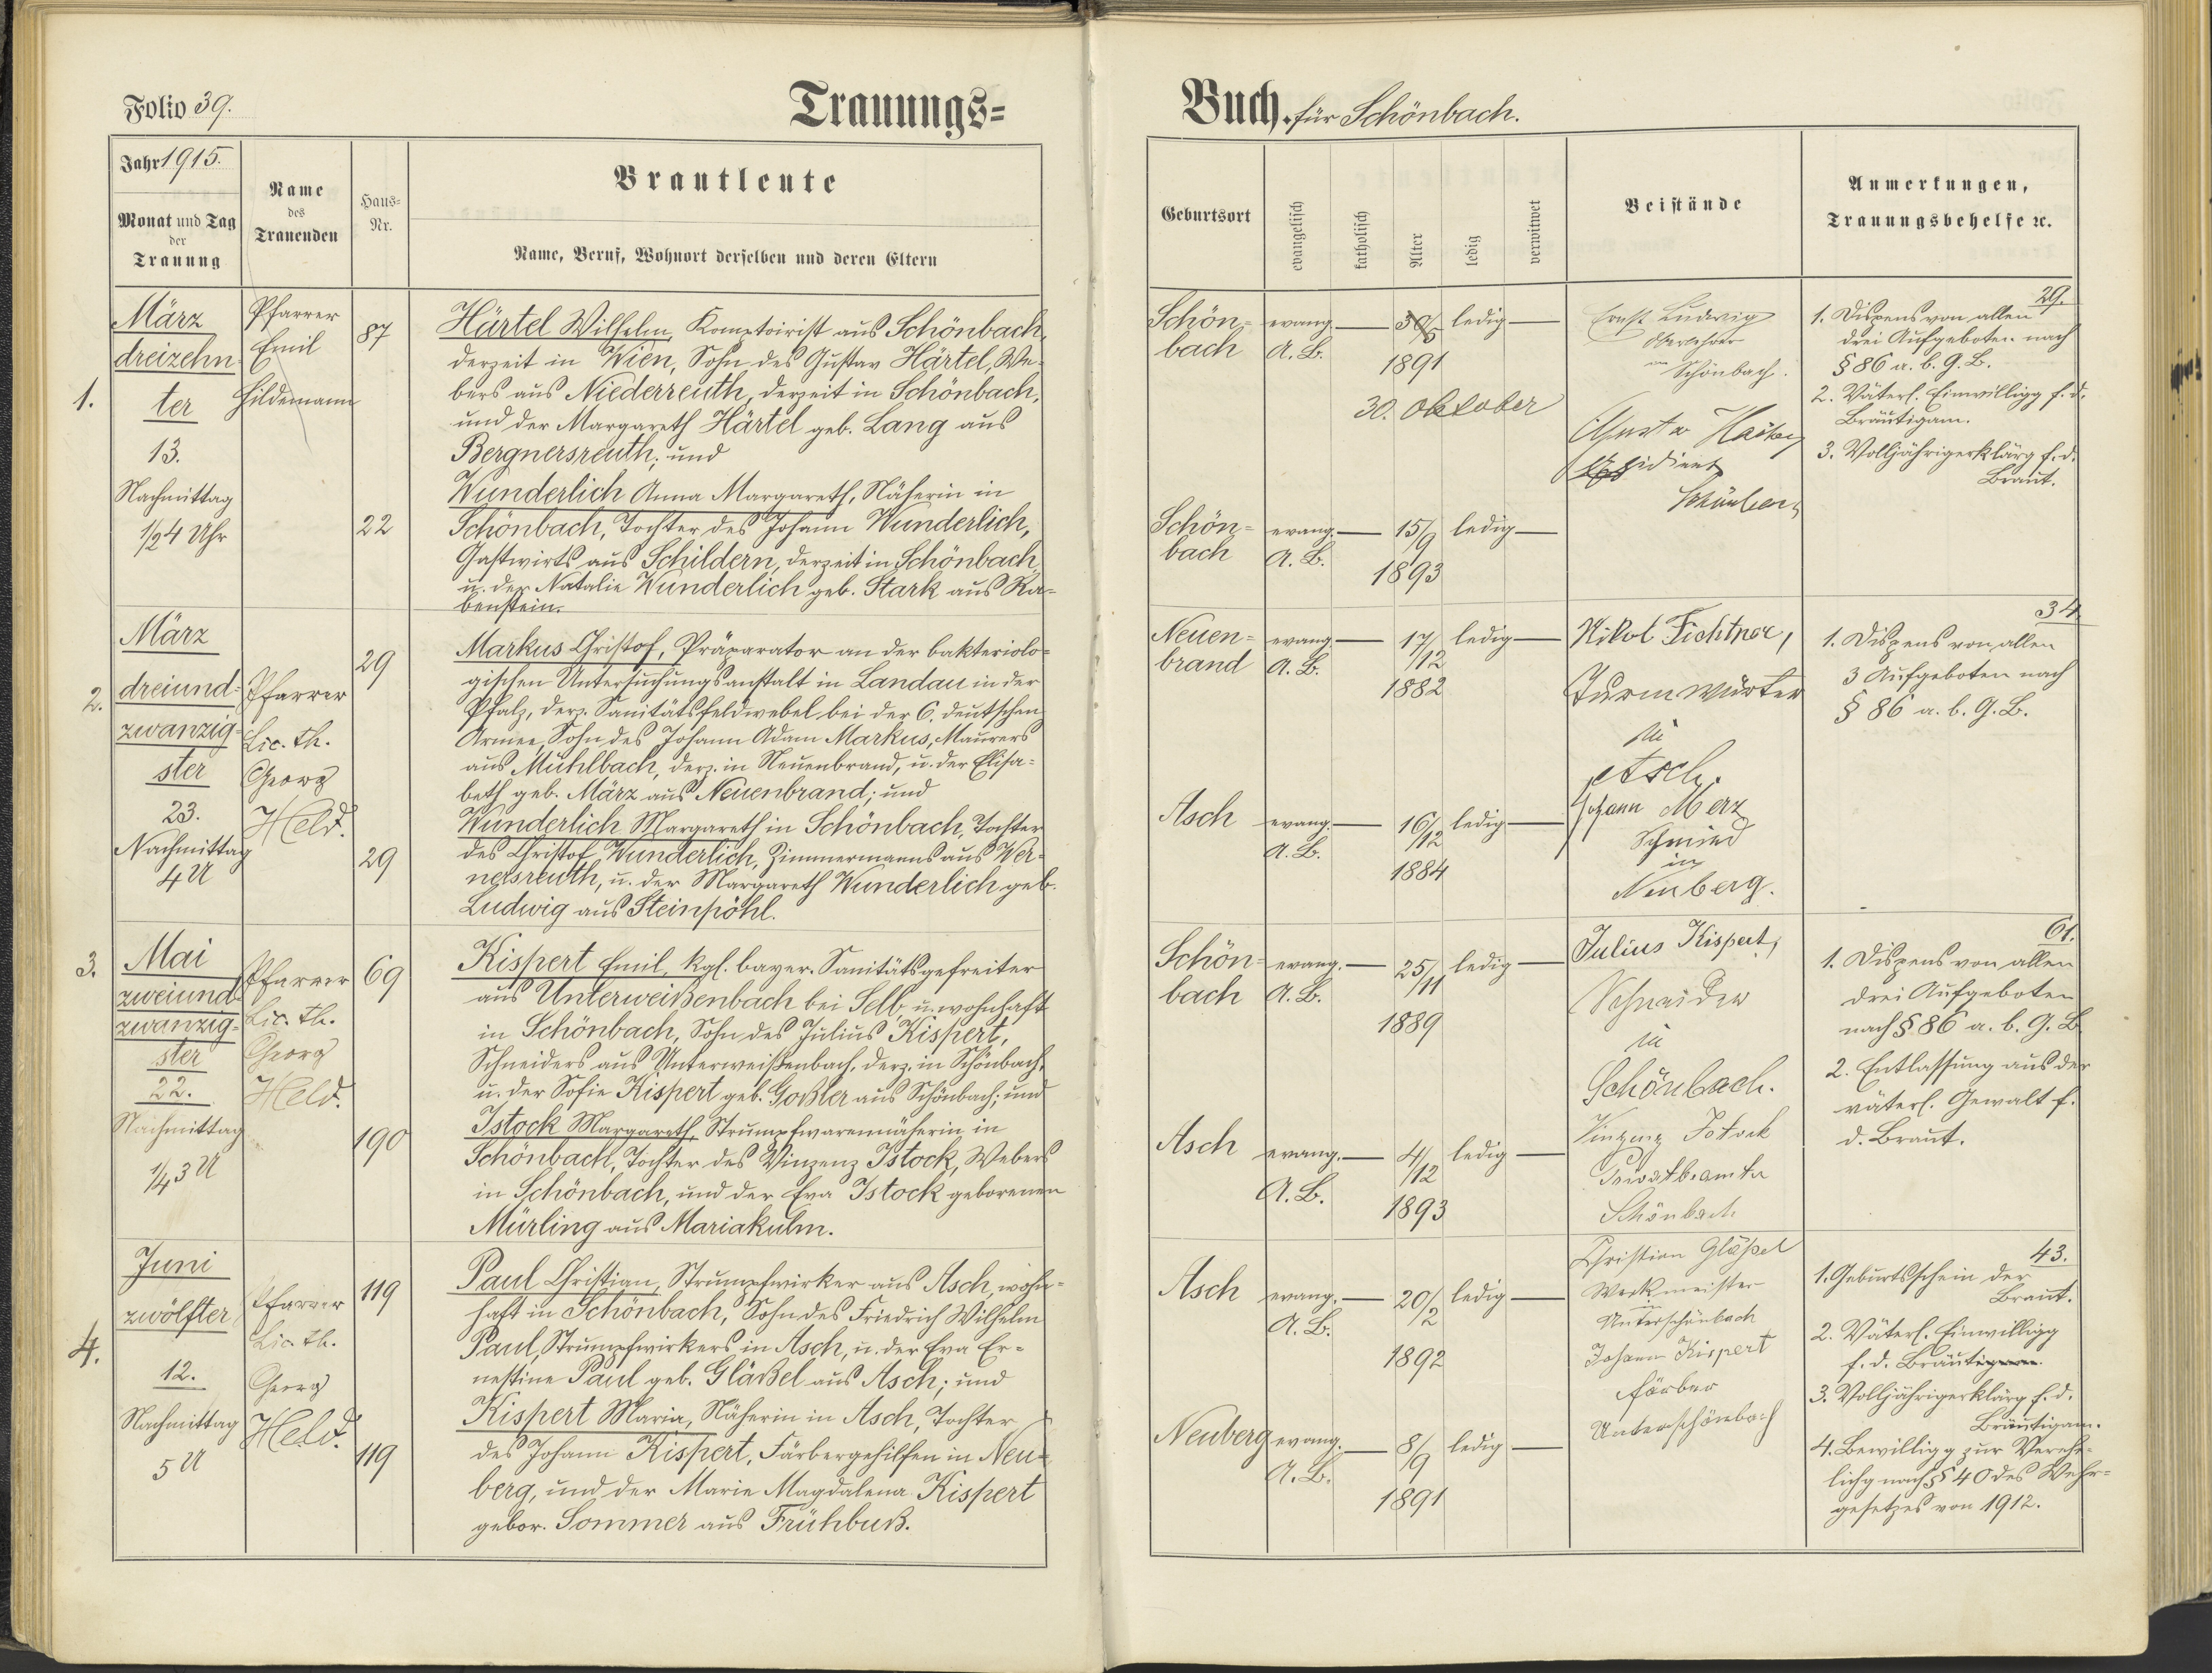 Folio 39.
Trauungs=
Jahr 1915.
Monat und Tag
der
Trauung
Name
des
Trauenden
Haus=
Nr.
Brautleute
Name, Beruf, Wohnort derselben und deren Eltern
1.
März
dreizehn
ter
13.
Nachmittag
1/2 4 Uhr
Pfarrer
Emil
Hildemann
87
Härtel Wilhelm, Komptoirist aus Schönbach,
derzeit in Wien, Sohn des Gustav Härtel, We-
bers aus Niederreuth, derzeit in Schönbach,
und der Margareth Härtel geb. Lang aus
Bergnersreuth; und
Wunderlich Anna Margareth, Näherin in
22
Schönbach, Tochter des Johann Wunderlich,
Gastwirts aus Schildern, derzeit in Schönbach,
u. der Natalie Wunderlich geb. Stark aus Ra-
benstein.
2.
März
dreiund-
zwanzig-
ster
23.
Nachmittag
4 U
Pfarrer
Lic. th.
Georg
Held.
29
Markus Christof, Präparator an der bakteriolo-
gischen Untersuchungsanstalt in Landau in der
Pfalz, derz. Sanitätsfeldwebel bei der 6. deutschen
Armee, Sohn des Johann Adam Markus, Maurers
aus Mühlbach, derz. in Neuenbrand, u. der Elisa-
beth geb. März aus Neuenbrand; und
Wunderlich Margareth in Schönbach, Tochter
29
des Christof Wunderlich, Zimmermanns aus Wer-
nersreuth, u. der Margareth Wunderlich geb.
Ludwig aus Steinpöhl.
3.
Mai
zweiund-
zwanzig-
ster
22.
Nachmittag
1/4 3 U
Pfarrer
Lic. th.
Georg
Held.
69
Kispert Emil, kgl. bayer. Sanitätsgefreiter
aus Unterweißenbach bei Selb, u. wohnhaft
in Schönbach, Sohn des Julius Kispert,
Schneiders aus Unterweißenbach, derz. in Schönbach,
u. der Sofie Kispert geb. Goßler aus Schönbach; und
190
Istock Margareth, Strumpfwarennäherin in
Schönbach, Tochter des Vinzenz Istock, Webers
in Schönbach, und der Eva Istock geborenen
Mürling aus Mariakulm.
4.
Juni
zwölfter
12.
Nachmittag
5 U
Pfarrer
Lic. th.
Georg
Held.
119
Paul Christian, Strumpfwirker aus Asch, wohn-
haft in Schönbach, Sohn des Friedrich Wilhelm
Paul, Strumpfwirkers in Asch, u. der Eva Er-
nestine Paul geb. Gläßel aus Asch; und
Kispert Maria, Näherin in Asch, Tochter
119
des Johann Kispert, Färbergehilfen in Neu-
berg, und der Marie Magdalena Kispert
gebor. Sommer aus Frühbuß.
Buch. für Schönbach.
Geburtsort
evangelisch
katholisch
Alter
ledig
verwitwet
Beistände
Anmerkungen,
Trauungsbehelfe ec.
Schön-
bach
evang.
A. B.
ledig
1891
30. Oktober
Ernst Ludwig
Oberlehrer
Schönbach.
Gustav
29.
1. Dispens von allen
drei Aufgeboten nach
§ 86 a. b. G. B.
2. Väterl. Einwilligg f. d.
Bräutigam.
3. Volljährigerklärg f. d.
Braut.
Schön-
bach
evang.
A. B.
15/9
1893
ledig
Neuen-
brand
evang.
A. B.
17/12
1882
ledig
Nikol Fichtner,
Turmwärter
in
Asch.
34.
1. Dispens von allen
3 Aufgeboten nach
§ 86 a. b. G. B.
Asch
evang.
A. B.
16/12
1884
ledig
Johann Merz
Schmied
in
Neuberg.
Schön-
bach
evang.
A. B.
25/11
1889
ledig
Julius Kispert,
Schneider
in
Schönbach.
61.
1. Dispens von allen
drei Aufgeboten
nach § 86 a. b. G. B.
2. Entlassung aus der
väterl. Gewalt f.
d. Braut.
Asch
evang.
A. B.
4/12
1893
ledig
Vinzenz Istock
Privatbeamter
Schönbach
Asch
evang.
A. B.
20/2
1892
ledig
Christian Gläßel
Werkmeister
in
Unterschönbach
Johann Kispert
Färber
Unterschönbach
43.
1. Geburtsschein der
Braut.
2. Väterl. Einwilligg
f. d. Bräutigam.
3. Volljährigerklärg f. d.
Bräutigam.
4. Bewilligg zur Verehe-
lichg nach § 40 des Wehr-
gesetzes von 1912.
Neuberg
evang.
A. B.
8/9
1891
ledig